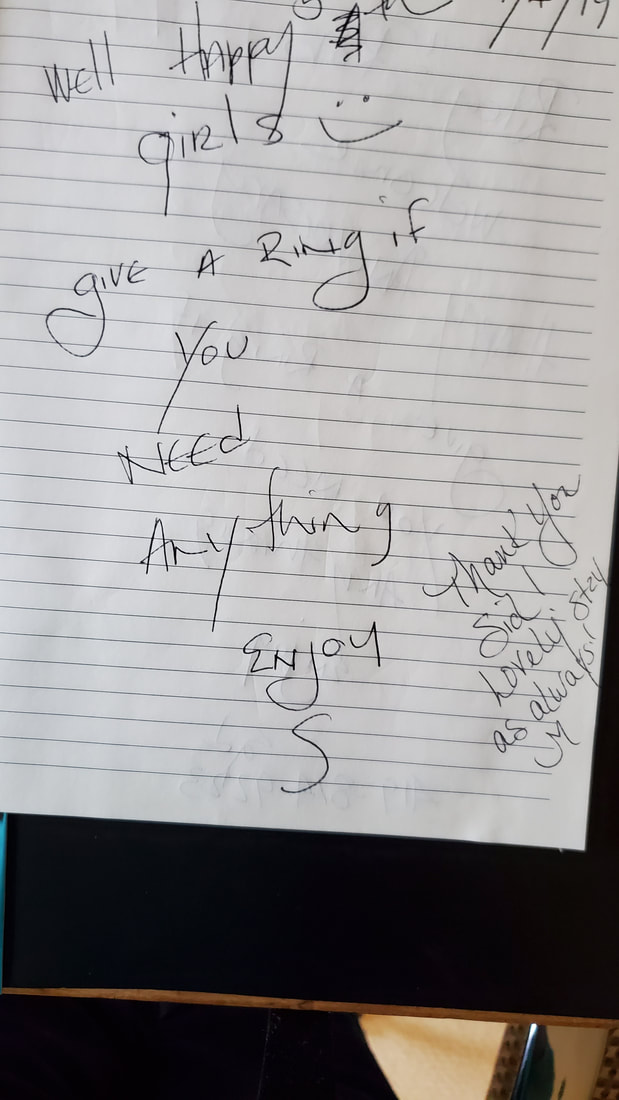 Well Happy
girls
give A Ring if
you
NEEd
Anything
ENjoy
S
Thank you
Sid!
Lovely stay
as always!
M